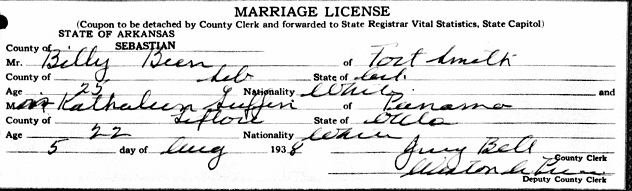 MARRIAGE LICENSE
(Coupon to be detached by County Clerk and forwarded to State Registrar Vital Statistics, State Capitol)
STATE OF ARKANSAS
County of SEBASTIAN
Mr. Billy Been of Fort Smith
County of Seb State of Ark
Age 25 Nationality White and
Miss Kathaleen of Panama
County of Leflore State of Okla
Age 22 Nationality White
5 day of Aug 1938 Bell
County Clerk
Deputy County Clerk